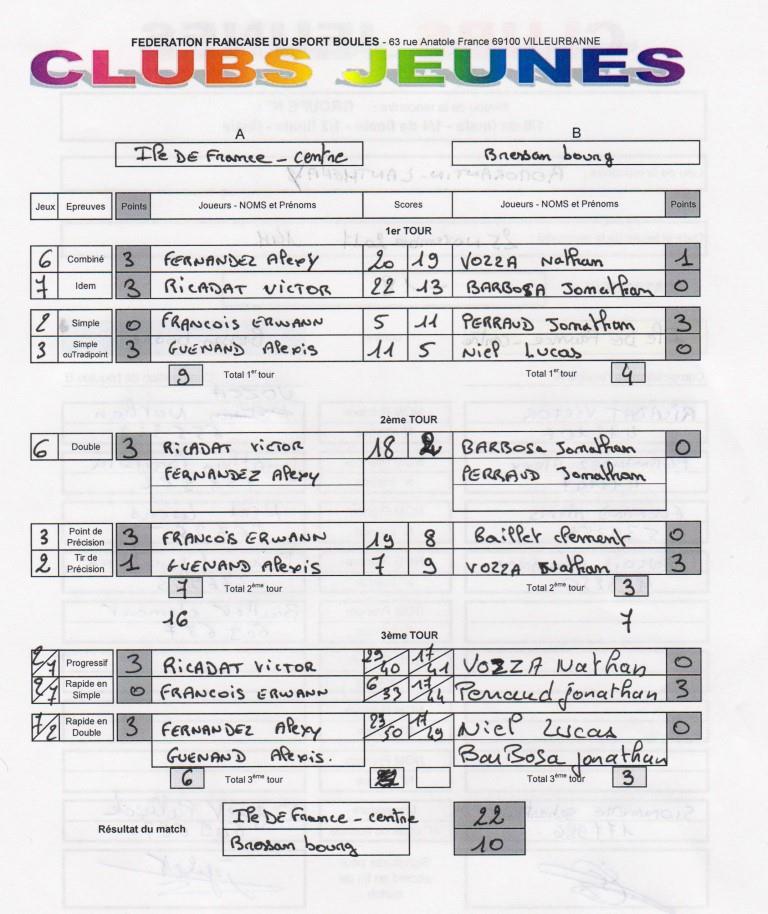 FEDERATION FRANCAISE DU SPORT BOULES - 63 rue Anatole France 69100 VILLEURBANNE
CLUBS JEUNES
A B
Ile DE France - centre Bressan bourg
Jeux Epreuves Points Joueurs - NOMS et Prénoms Scores Joueurs - NOMS et Prénoms Points
1er TOUR
6 Combiné 3 FERNANDEZ Alexy 20 19 VOZZA Nathan 1
7 Idem 3 RICADAT VICTOR 22 13 BARBOSA Jonathan 0
2 Simple 0 FRANCOIS ERWANN 5 11 PERRAUD Jonathan 3
3 Simple ouTradipoint 3 GUENAND Alexis 11 5 Niel Lucas 0
9 Total 1er tour Total 1er tour 4
2ème TOUR
6 Double 3 RICADAT VICTOR 18 2 BARBOSA Jonathan 0
FERNANDEZ Alexy PERRAUD Jonathan
3 Point de Précision 3 FRANCOIS ERWANN 19 8 Baillet clement 0
2 Tir de Précision 1 GUENAND Alexis 7 9 VOZZA Nathan 3
7 Total 2ème tour Total 2ème tour 3
16 7
3ème TOUR
2/7 Progressif 3 RICADAT VICTOR 29/40 17/41 VOZZA Nathan 0
2/7 Rapide en Simple 0 FRANCOIS ERWANN 6/33 17/44 Perraud jonathan 3
7/2 Rapide en Double 3 FERNANDEZ Alexy 23/50 17/49 Niel Lucas 0
GUENAND Alexis. BarBosa jonathan
6 Total 3ème tour Total 3ème tour 3
Ile DE France - centre 22
Résultat du match
Bressan bourg 10